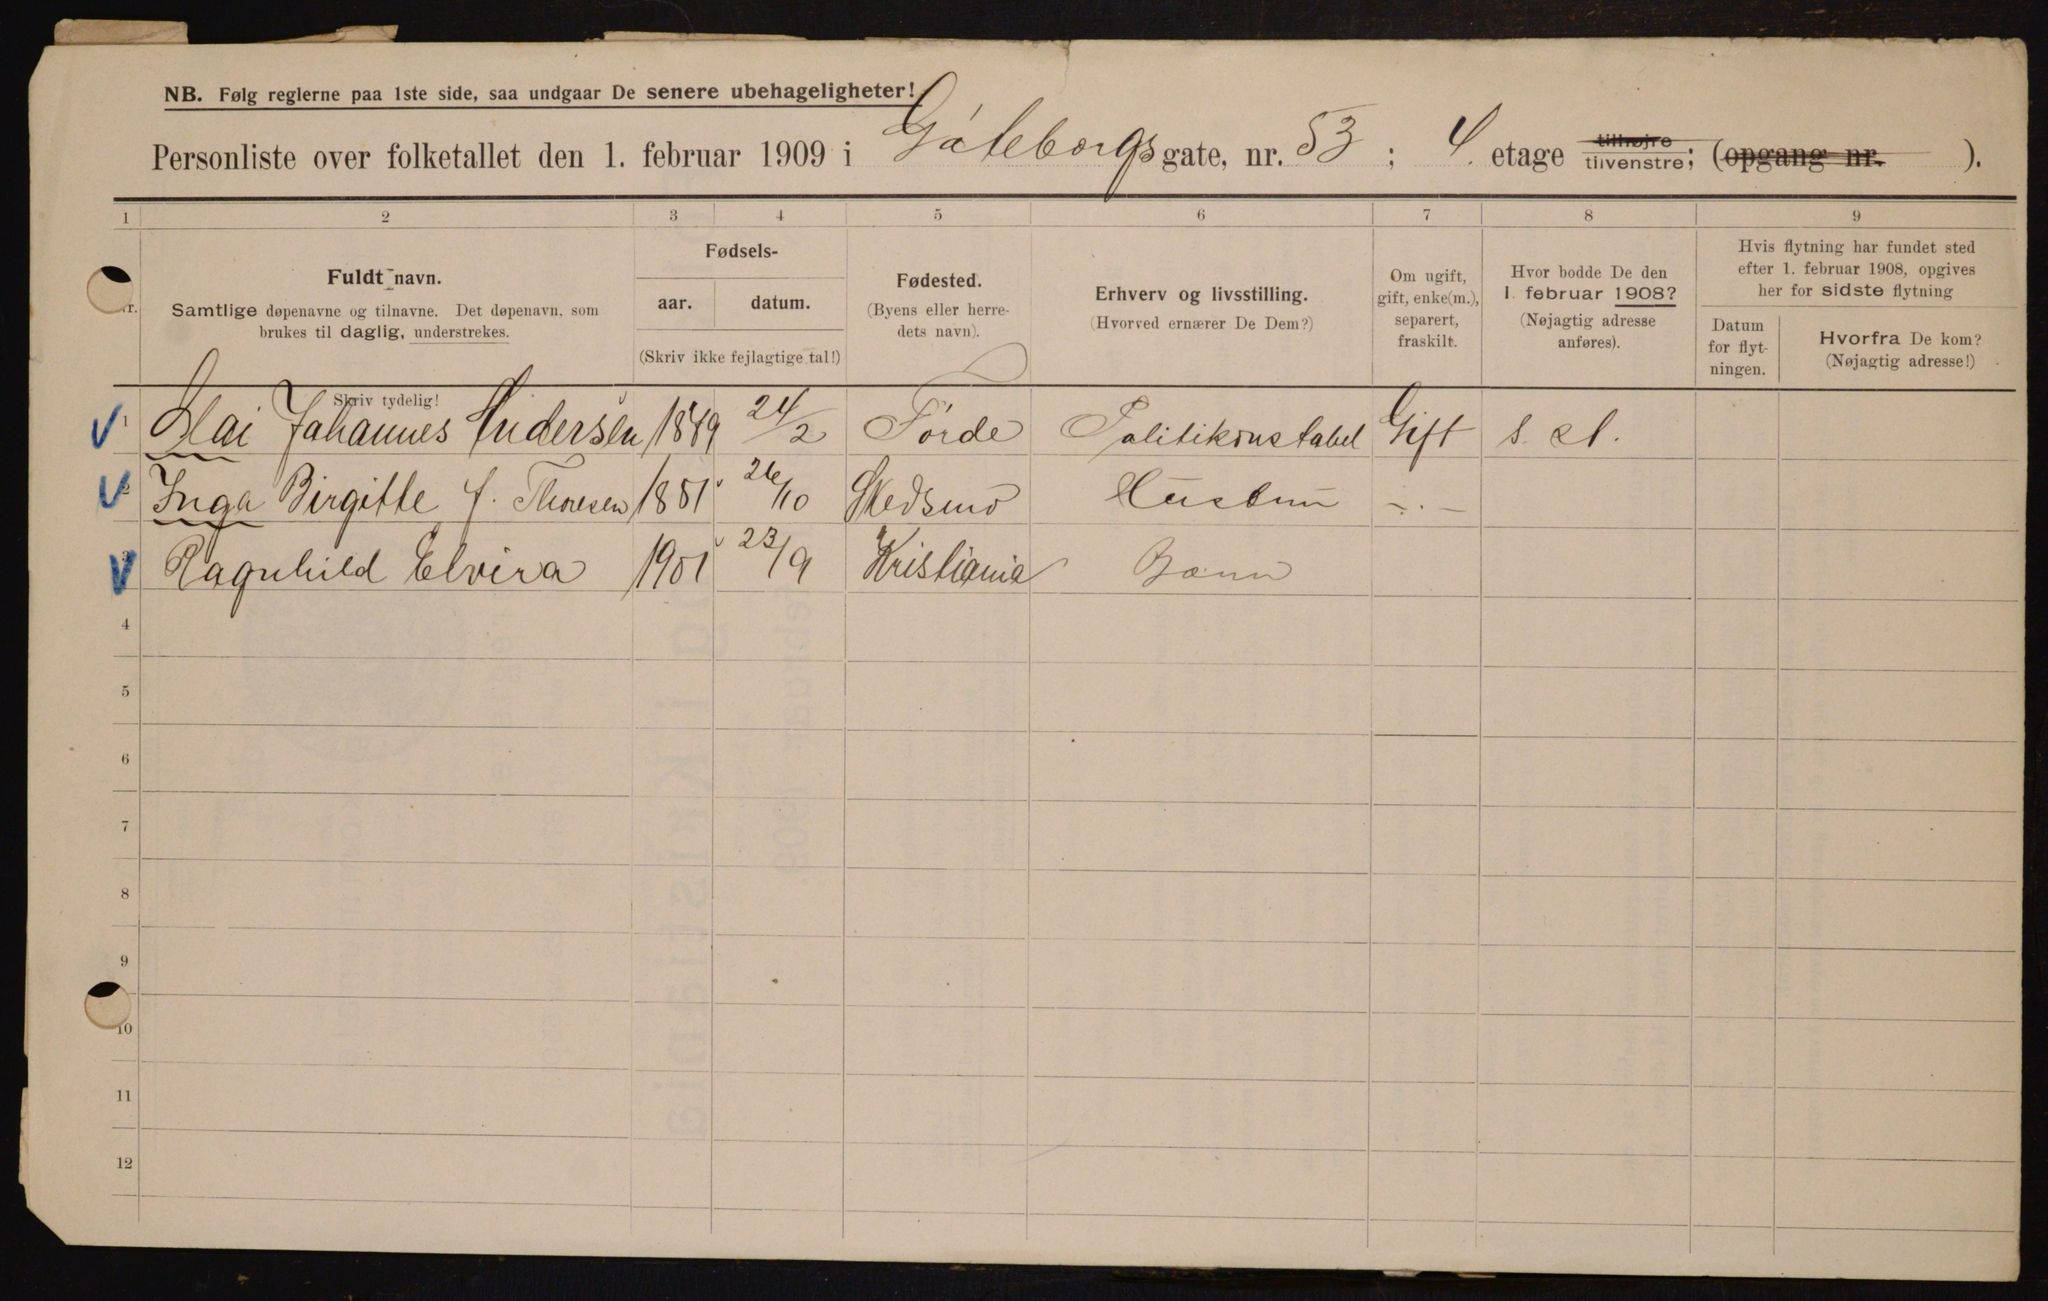 NB. Følg reglerne paa 1ste side, saa undgaar De senere ubehageligheter!
Personliste over folketallet den 1. februar 1909 i Göteborgsgate, nr. 53; 4. etage tilhøjre tilvenstre; (opgang nr. ).
1 2 3 4 5 6 7 8 9
Fuldt navn.
Samtlige døpenavne og tilnavne. Det døpenavn, som
brukes til daglig, understrekes.
Skriv tydelig!
Fødsels-
aar. datum.
(Skriv ikke fejlagtige tal!)
Fødested.
(Byens eller herre-
dets navn).
Erhverv og livsstilling.
(Hvorved ernærer De Dem?)
Om ugift,
gift, enke(m.),
separert,
fraskilt.
Hvor bodde De den
1. februar 1908?
(Nøjagtig adresse
anføres).
Hvis flytning har fundet sted
efter 1. februar 1908, opgives
her for sidste flytning
Datum
for flyt-
ningen.
Hvorfra De kom?
(Nøjagtig adresse!)
1 Olai Johannes Andersen 24/2 Førde Politikonstabel Gift s. st.
2 Inga Birgitte f. Thoresen 1881 26/10 Skedsmo Hustru -.-
3 Ragnhild Elvira 1901 23/9 Kristiania Barn
4
5
6
7
8
9
10
11
12